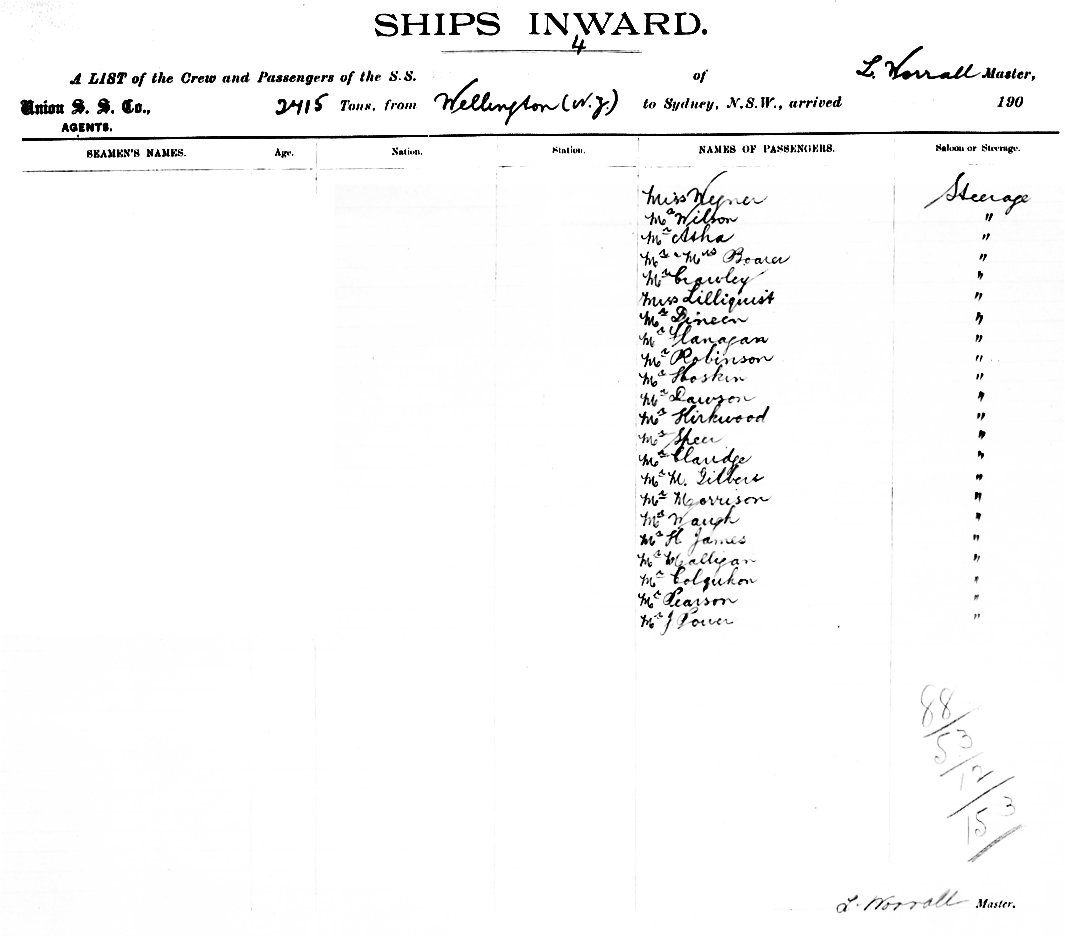 SHIPS INWARD.
4
A LIST of the Crew and Passengers of the S.S. of L. Worrall Master,
Union S. S. Co., 2415 Tons, from Wellington (N.Z.) to Sydney, N.S.W., arrived 190
AGENTS.
SEAMEN'S NAMES. Age. Nation. Station. NAMES OF PASSENGERS. Saloon or Steerage.
Miss Wegner Steerage
Mr Wilson "
Mr Asha "
Mr & Mrs Boarer "
Mr Crowley "
Miss Lilliquist "
Mr Dineen "
Mr Flanagan "
Mr Robinson "
Mr Hoskin "
Mr Dawson "
Mr Kirkwood "
Mr Speer "
Mr Claridge "
Mr M. Gilbert "
Mr Morrison "
Mr Waugh "
Mr H James "
Mr Malligan "
Mr Colquhon "
Mr Pearson "
Mr J Power "
88/
53/
12/
153
L. Worrall Master.